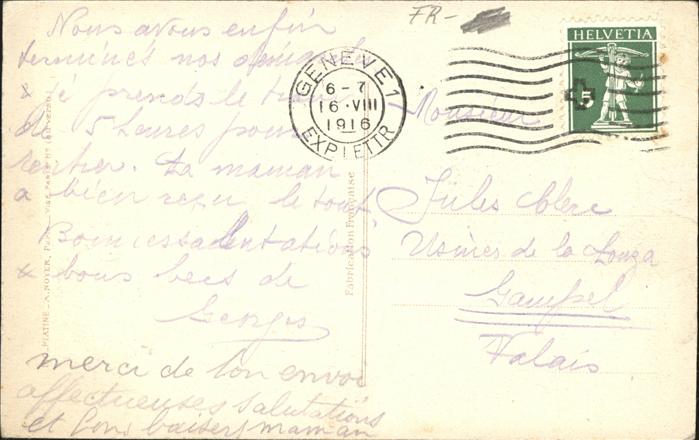 Nous avons enfin
terminés nos
& je prends le train
de 5 heures pour
rentrer. Ta maman
a bien reçu le tout,
Bonnes salutations
& bons becs de
Georges
merci de ton envoi
affectueuses salutations
et bons baisers maman
FR-
GENEVE 1
6-7
16.VIII
1916
EXP. LETTR
HELVETIA
5
Monsieur
Jules Clerc
Usines de la Lonza
Gampel
Valais
Fabrication Française
PLATINE - A. NOYER, Paris